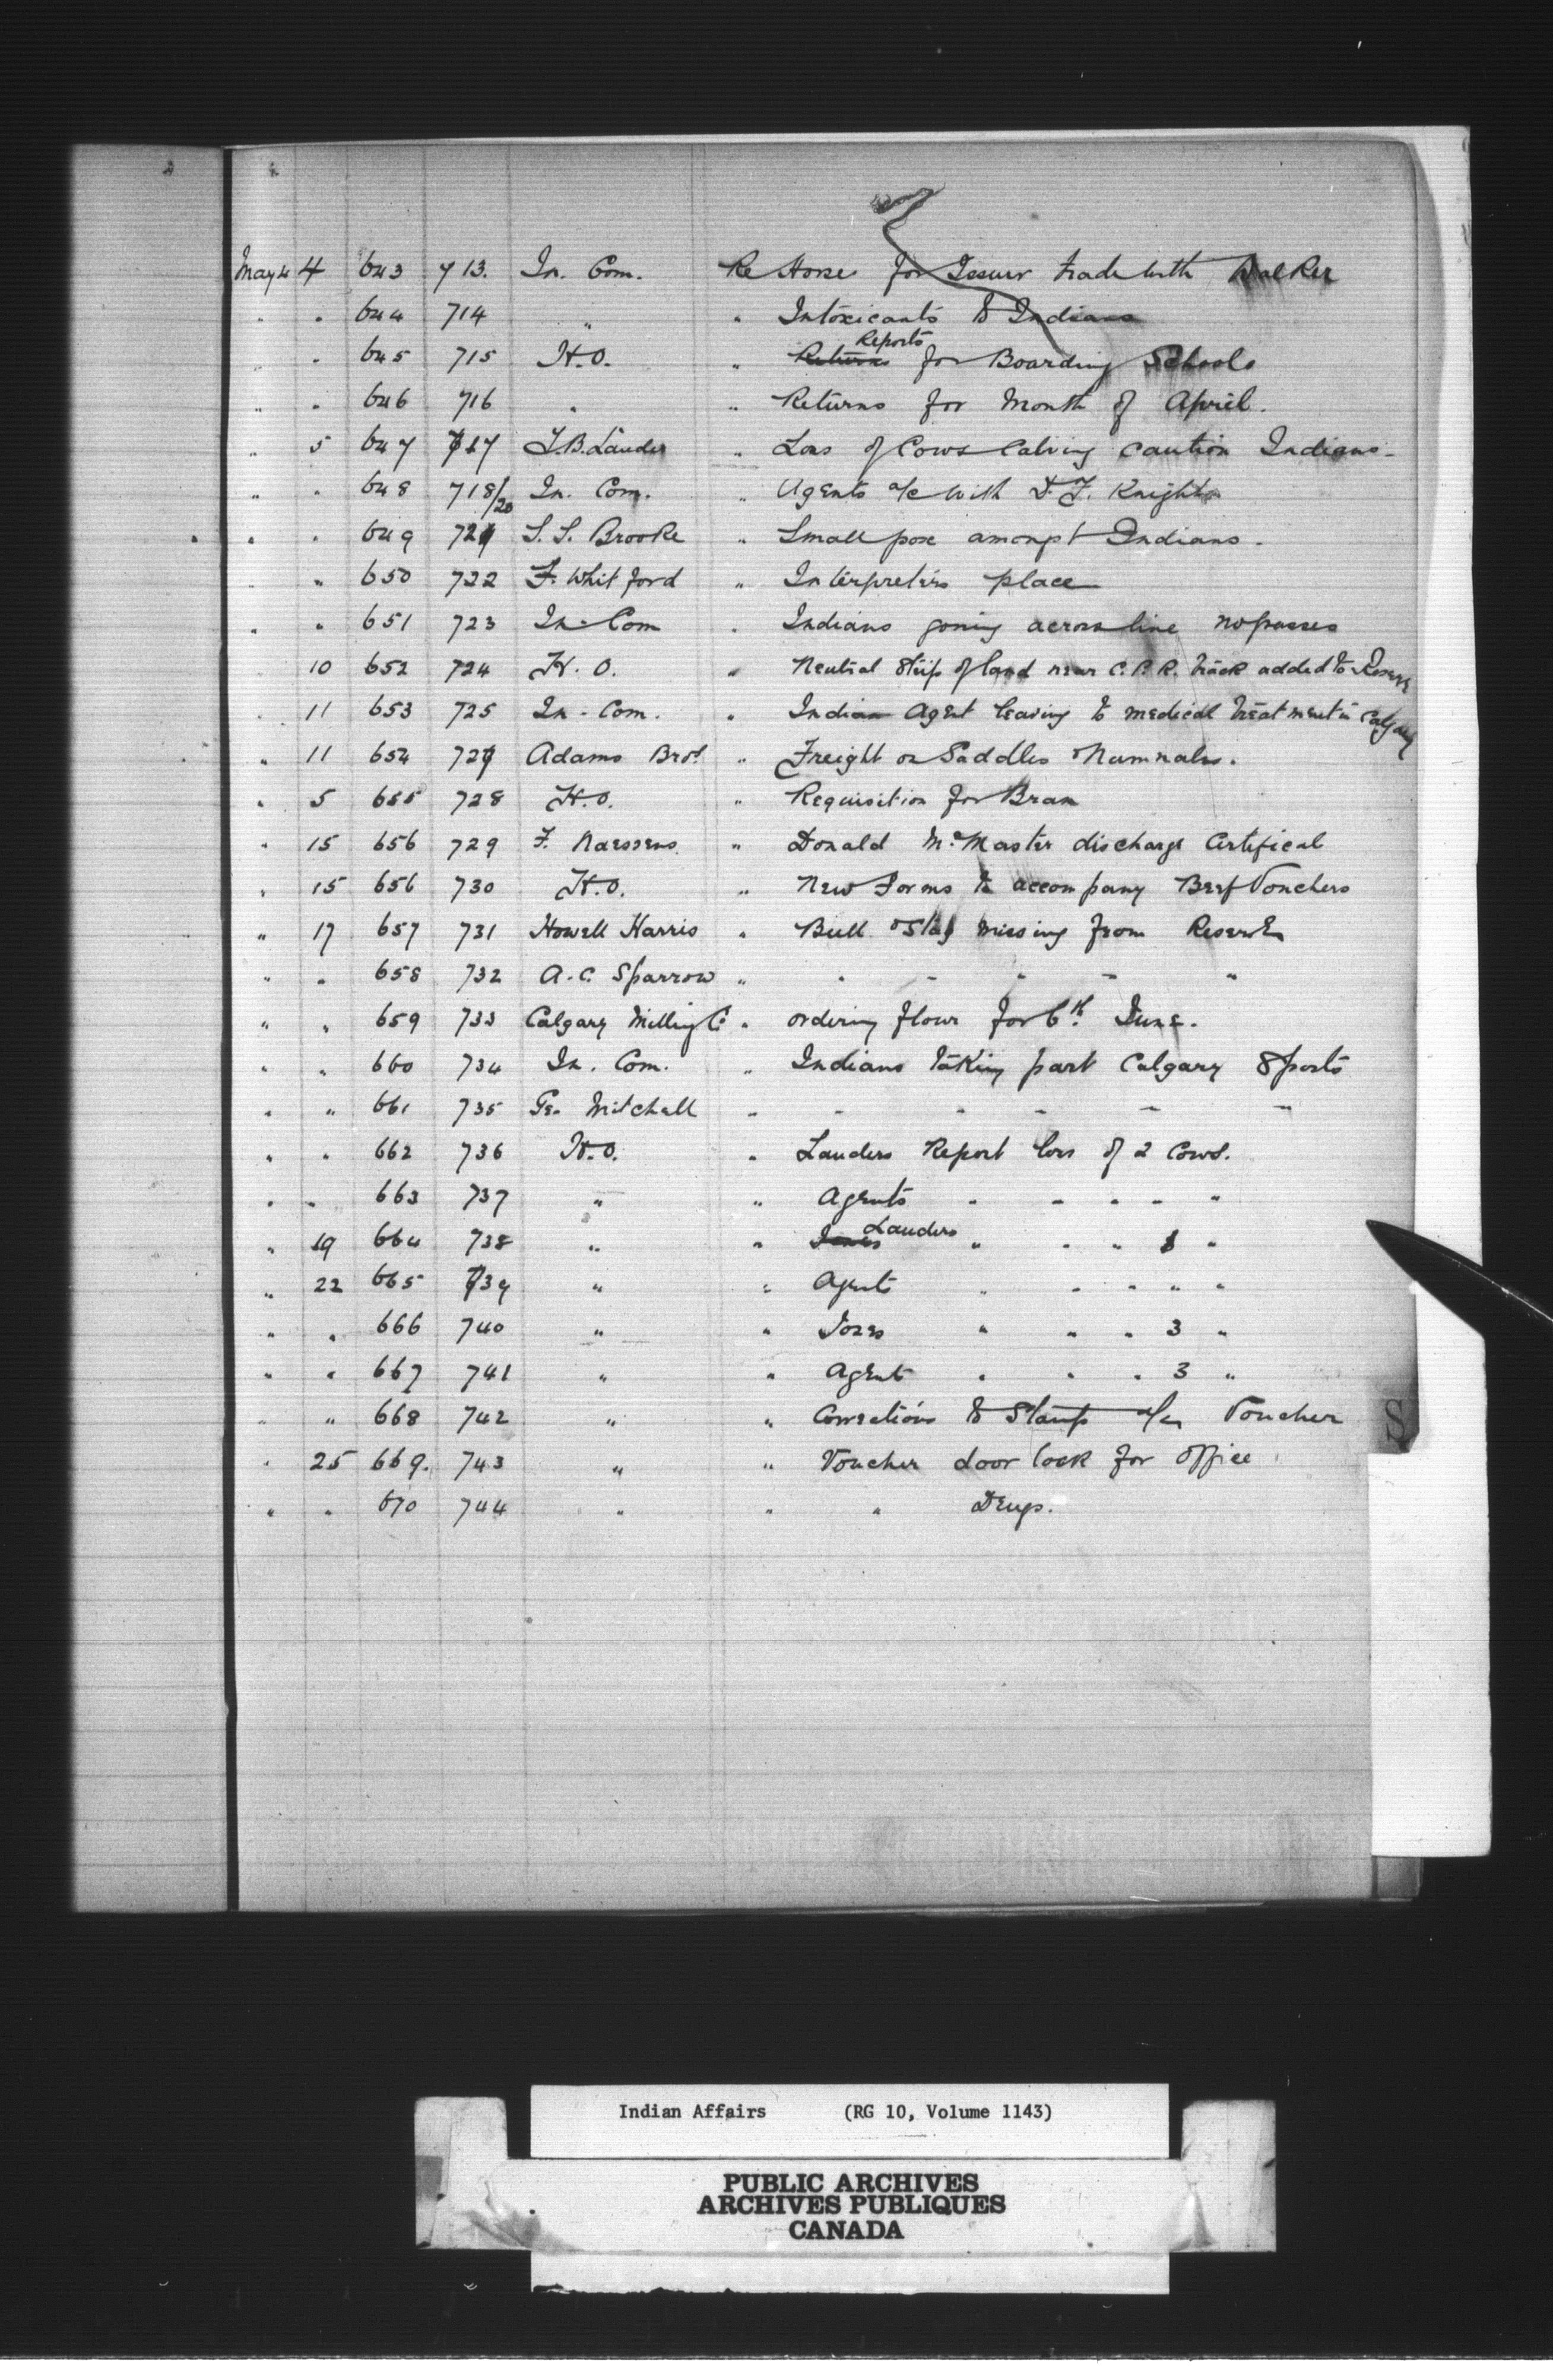 May 4 4 643 713. In. Com. Re Horse for Issuer trade with Walker
" " 644 714 " " Intoxicants to Indians
" " 645 715 H.O. " Reports
Returns for Boarding Schools
" " 646 716 " " Returns for Month of April.
" 5 647 717 J.B. Lauder " Loss of Cows Calving caution Indians -
" " 648 718/20 In. Com. " Agents a/c with D.F. Knight
" " 649 721 S.S. Brooke " Small pox amongst Indians.
" " 650 722 F. Whitford " Interpreters place
" " 651 723 In. Com " Indians going across line no passes
" 10 652 724 H.O. " Neutral Strip of land near C.P.R. track added to Reserve
" 11 653 725 In. Com. " Indian Agent leaving to medical treatment in Calgary
" 11 654 727 Adams Bros " Freight on Saddles & Numnahs.
" 5 655 728 H.O. " Requisition for Bran
" 15 656 729 F. Naessens " Donald McMaster discharge Certifical
" 15 656 730 H.O. " New Forms to accompany Beef Vouchers
" 17 657 731 Howell Harris " Bull & Stag missing from Reserve
" " 658 732 A.C. Sparrow " " " " " "
" " 659 733 Calgary Milling Co " ordering flour for 6th June.
" " 660 734 In. Com. " Indians taking part Calgary Sports
" " 661 735 Geo Mitchell " " " " " "
" " 662 736 H.O. " Lauders Report loss of 2 Cows.
" " 663 737 " " Agents " " " " "
" 19 664 738 " " Jones Lauders " " " 1 "
" 22 665 739 " " Agents " " " " "
" " 666 740 " " Jones " " " 3 "
" " 667 741 " " Agent " " " 3 "
" " 668 742 " " Corrections to Stamp a/c Voucher
" 25 669. 743 " " Voucher door lock for office
" " 670 744 " " " Drugs.
S
Indian Affairs (RG 10, Volume 1143)
PUBLIC ARCHIVES
ARCHIVES PUBLIQUES
CANADA